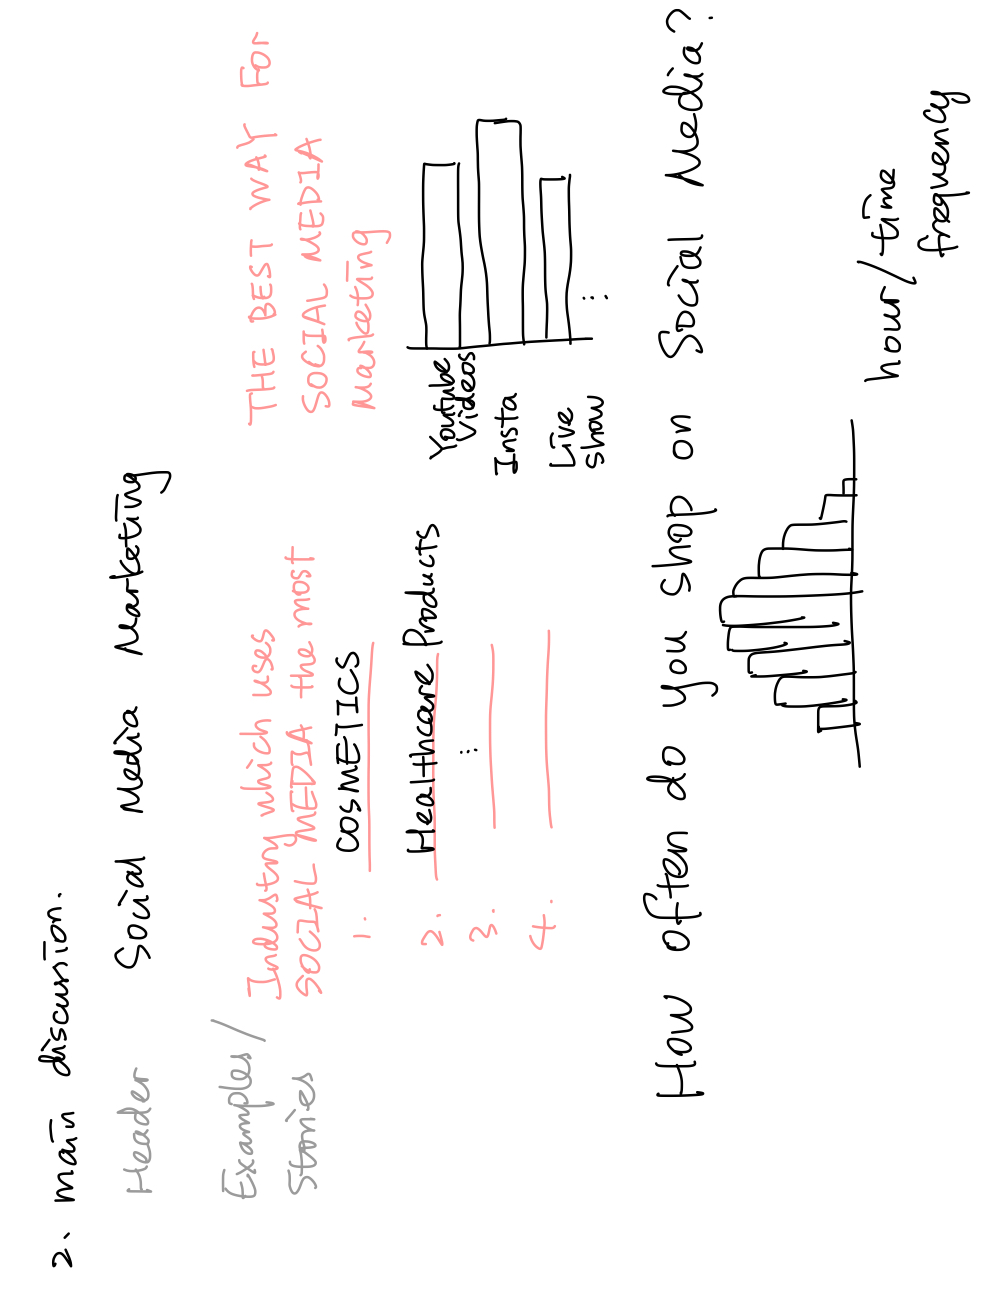 2. main discussion.
Header Social Media Marketing
Examples/
Stories
Industry which uses
SOCIAL MEDIA the most
1. COSMETICS
2. Healthcare Products
⋮
3.
4.
THE BEST WAY FOR
SOCIAL MEDIA
Marketing
Youtube
Videos
Insta
Live
show
⋮
How often do you shop on Social Media?
hour/time
frequency